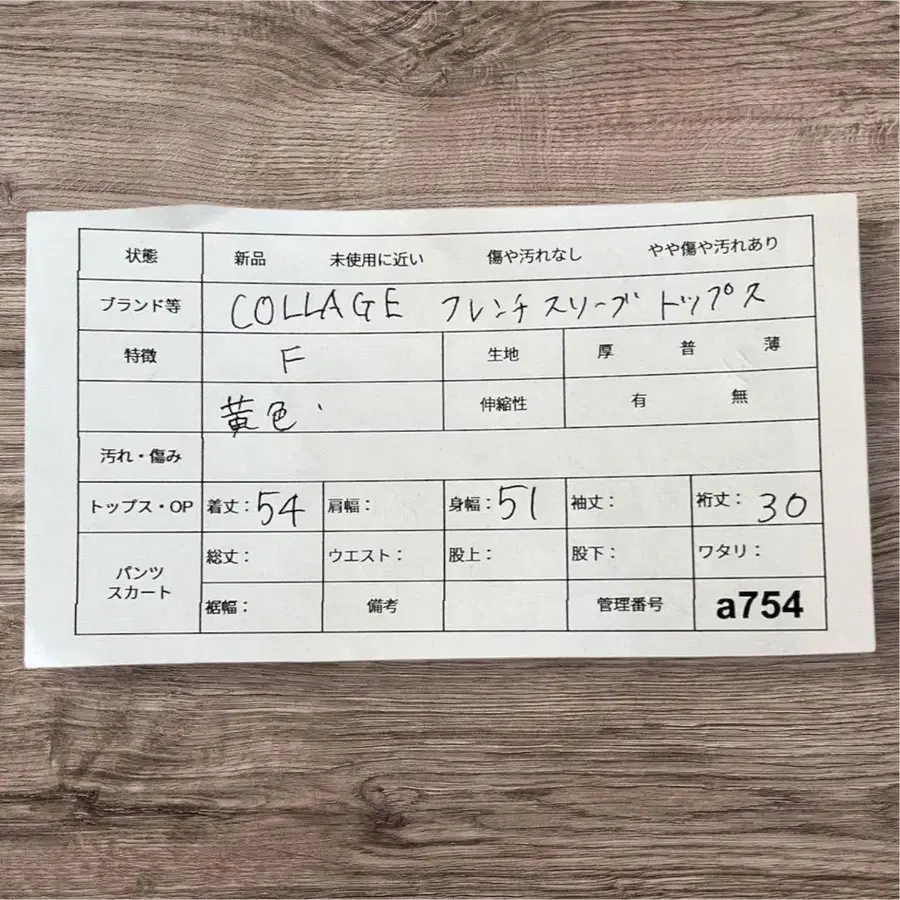 状態 新品 未使用に近い 傷や汚れなし やや傷や汚れあり
ブランド等 COLLAGE フレンチスリーブ トップス
特徴 F 生地 厚 普 薄
黄色、 伸縮性 有 無
汚れ・傷み
トップス・OP 着丈：54 肩幅： 身幅：51 袖丈： 裄丈：30
パンツ スカート 総丈： ウエスト： 股上： 股下： ワタリ：
裾幅： 備考 管理番号 a754